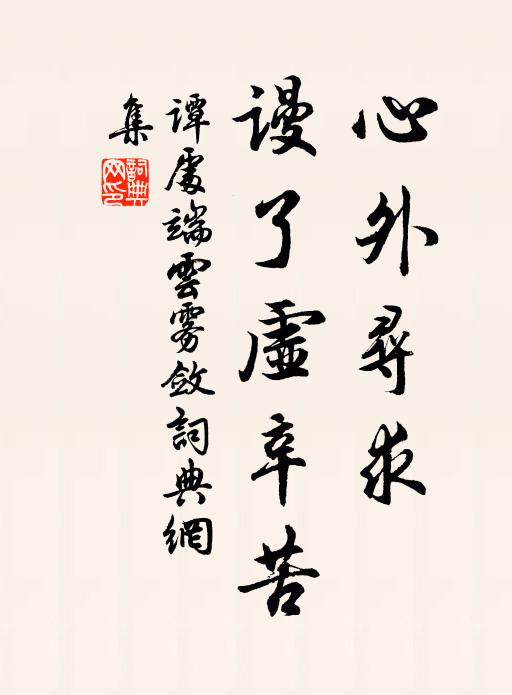 心外尋求
謾了虛辛苦
譚處端雲霧斂詞典網
集
詞典
网印